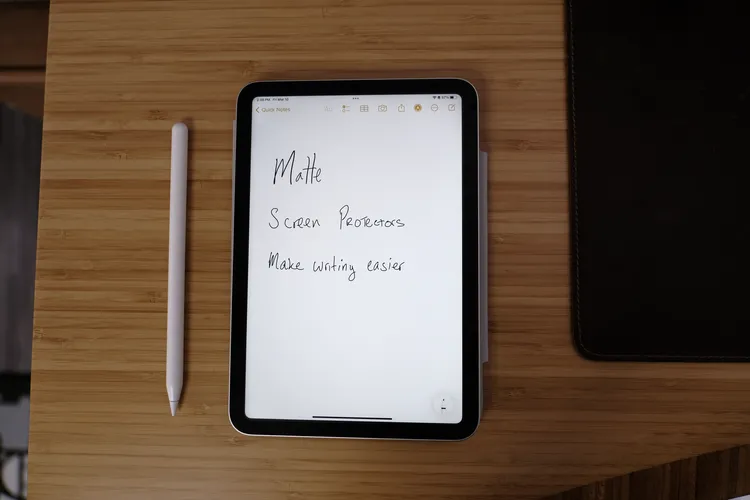 Quick Notes
Matte
Screen Protectors
Make writing easier